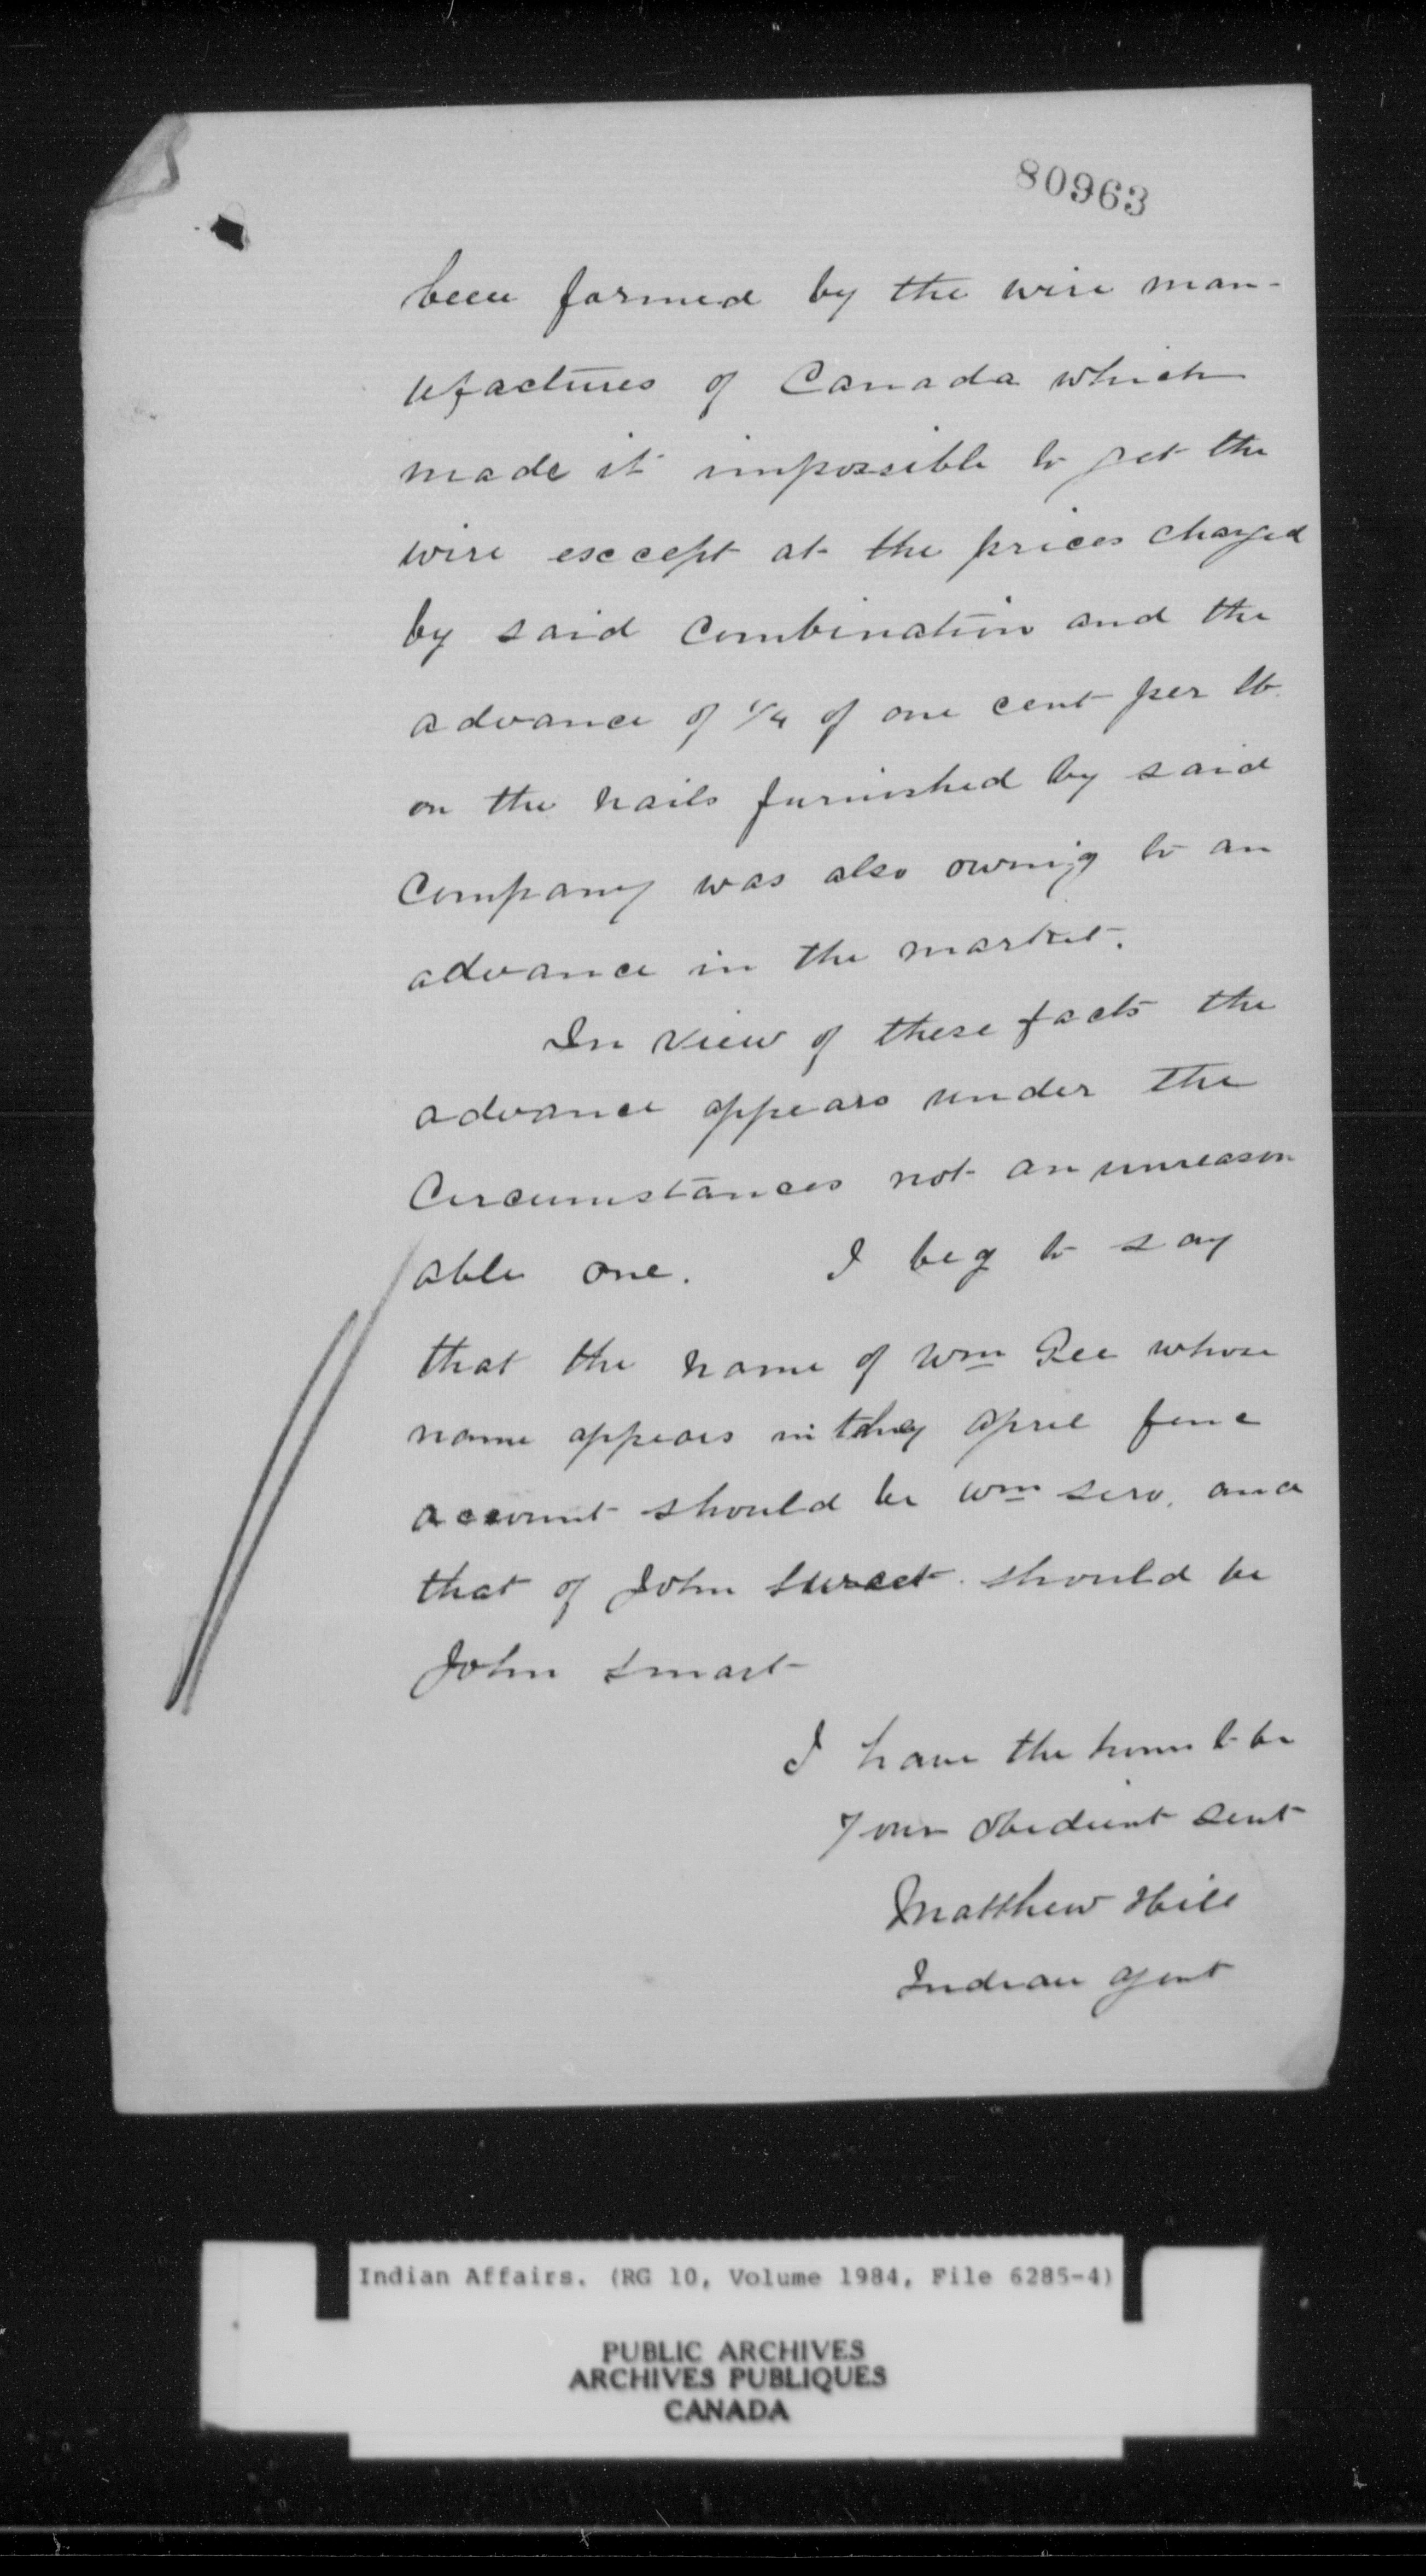 80963
been formed by the wire man-
ufactures of Canada which
made it impossible to get the
wire esccept at the prices charged
by said Combination and the
advance of 1/4 of one cent per lb.
on the nails furnished by said
Company was also owing to an
advance in the market.
In view of these facts the
advance appears under the
Circumstances not an unreason
able one. I beg to say
that the name of Wm Gee whose
name appears in April fence
account should be Wm and
that of John should be
John Smart
I have the honor to be
Your Obedient Servt
Matthew Hill
Indian Agent
Indian Affairs. (RG 10, Volume 1984, File 6285-4)
PUBLIC ARCHIVES
ARCHIVES PUBLIQUES
CANADA